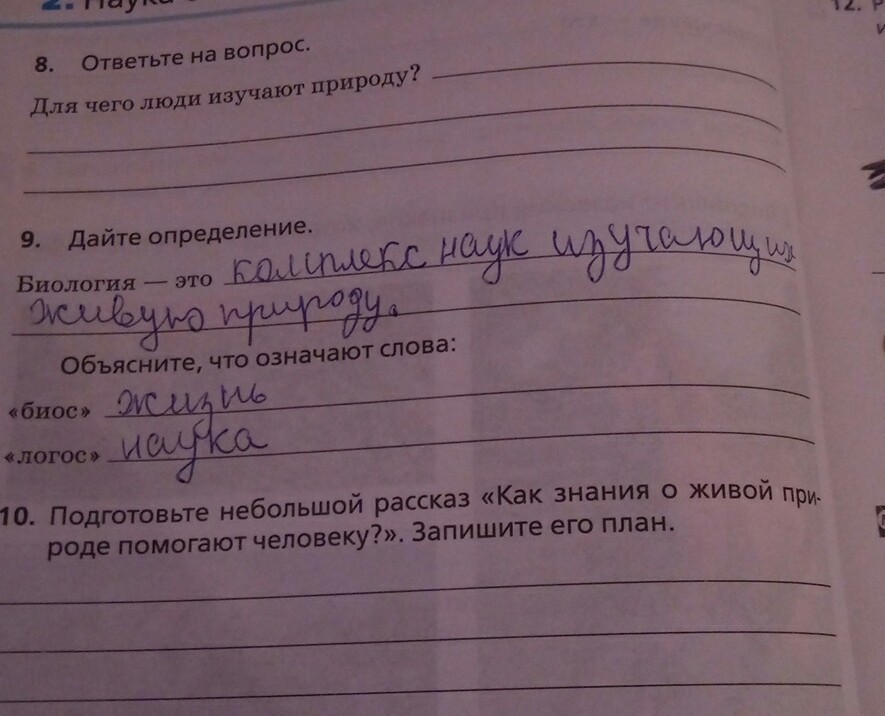 2. Наука
12.
8. Ответьте на вопрос.
Для чего люди изучают природу?
9. Дайте определение.
Биология — это комплекс наук изучающих
живую природу.
Объясните, что означают слова:
«биос» жизнь
«логос» наука
10. Подготовьте небольшой рассказ «Как знания о живой при-
роде помогают человеку?». Запишите его план.